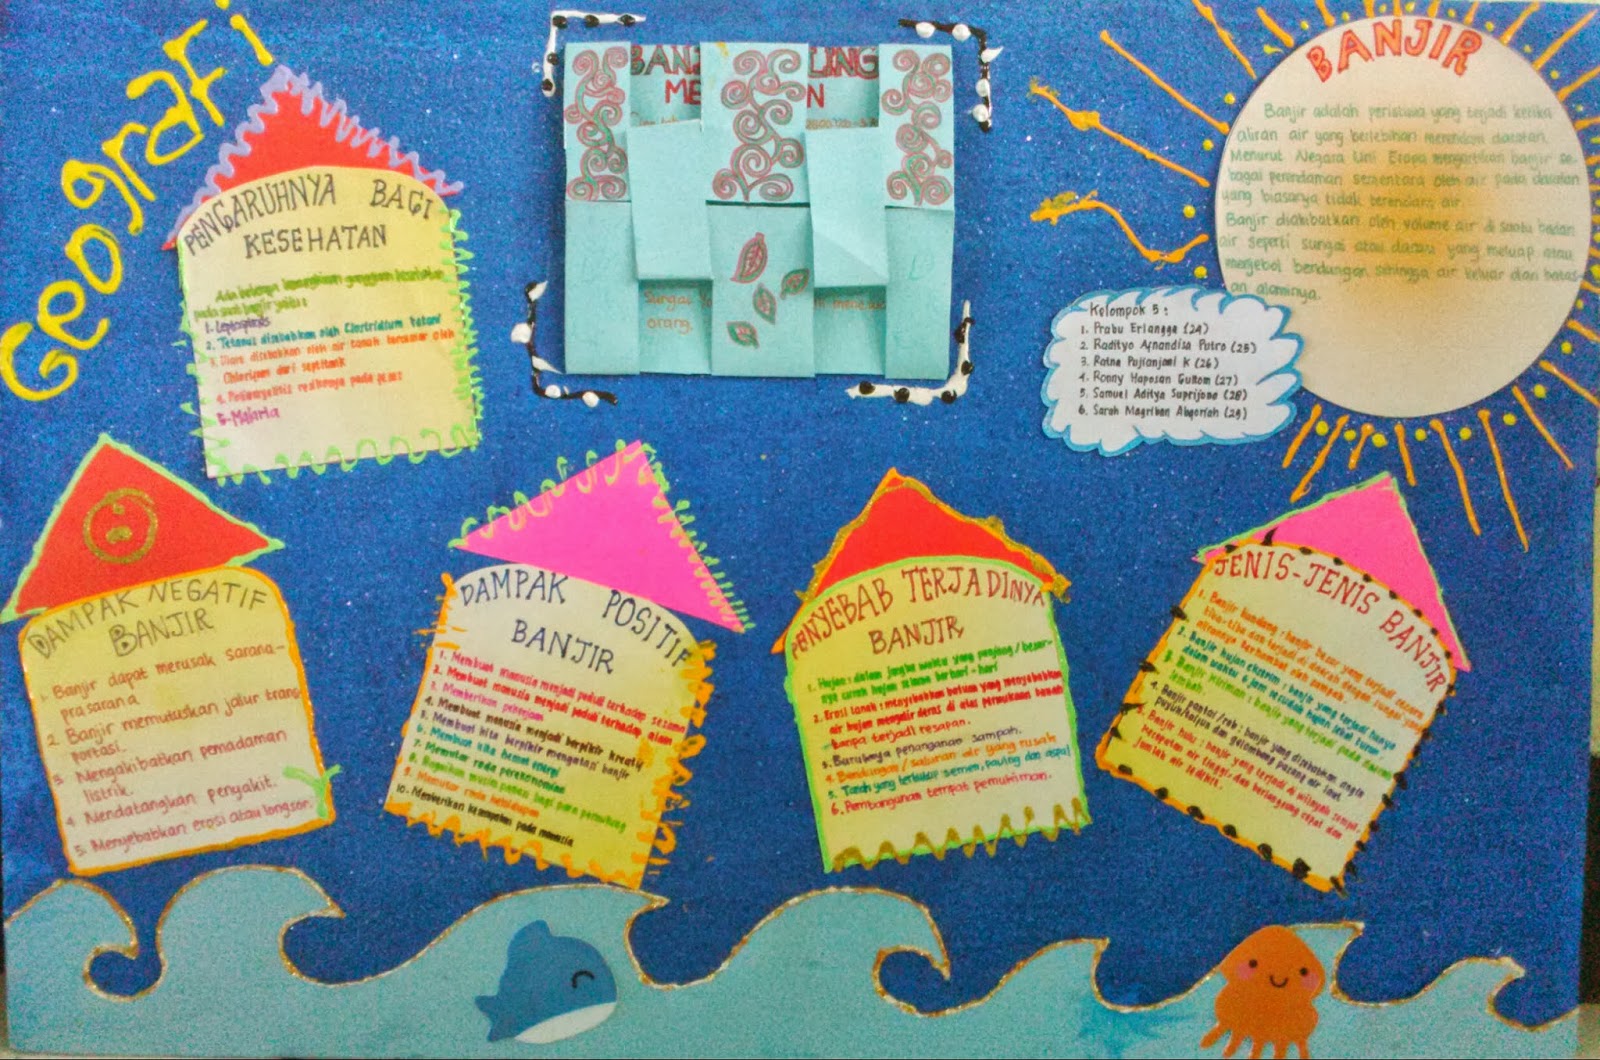 Geografi
BANJ LING
ME N
Sungai
orang.
BANJIR
Banjir adalah peristiwa yang terjadi ketika
aliran air yang berlebihan merendam daratan.
Menurut Negara Uni Eropa mengartikan banjir se-
bagai perendaman sementara oleh air pada daratan
yang biasanya tidak terendam air.
Banjir diakibatkan oleh volume air di suatu badan
air seperti sungai atau danau yang meluap atau
menjebol bendungan sehingga air keluar dari batas-
an alaminya.
Kelompok 5 :
1. Prabu Erlangga (24)
2. Radityo Afnandisa Putro (25)
3. Ratna Pujianjani K (26)
4. Ronny Haposan Gultom (27)
5. Samuel Aditya Suprijono (28)
6. Sarah Magriban Abqoriah (29)
PENGARUHNYA BAGI
KESEHATAN
Ada beberapa kemungkinan gangguan kesehatan
pada saat banjir yaitu :
1. Leptospirosis
2. Tetanus disebabkan oleh Clostridium tetani
3. Diare disebabkan oleh air tanah tercemar oleh
dari septitank
4. pada
5. Malaria
DAMPAK NEGATIF
BANJIR
1. Banjir dapat merusak sarana-
prasarana
2. Banjir memutuskan jalur trans-
portasi.
3. Mengakibatkan pemadaman
listrik.
4. Mendatangkan penyakit.
5. Menyebabkan erosi atau longsor.
DAMPAK POSITIF
BANJIR
1. Membuat manusia menjadi peduli terhadap sesama
2. Membuat manusia menjadi peduli terhadap alam
3. Memberikan pekerjaan
4. Membuat manusia menjadi berpikir kreatif
5. Membuat kita berpikir mengatasi banjir
6. Membuat kita hemat energi
7. Memutar roda perekonomian
8. bagi para
9. Memutar roda kehidupan
10. Memberikan pada manusia
PENYEBAB TERJADINYA
BANJIR
1. Hujan : dalam jangka waktu yang panjang / besar-
nya curah hujan selama berhari - hari
2. Erosi tanah : menyebabkan batuan yang menyebabkan
air hujan mengalir deras di atas permukaan tanah
tanpa terjadi resapan.
3. Buruknya penanganan sampah.
4. Bendungan / saluran air yang rusak
5. Tanah yang tertutup semen, paving dan aspal
6. Pembangunan tempat pemukiman.
JENIS-JENIS BANJIR
1. Banjir bandang : banjir besar yang terjadi secara
tiba-tiba dan terjadi di daerah dengan sungai yang
alirannya terhambat oleh sampah.
2. Banjir hujan ekstrim : banjir yang terjadi hanya
dalam waktu 6 jam sesudah hujan lebat turun.
3. Banjir kiriman : banjir yang terjadi pada daerah
lembah.
4. Banjir pantai / rob : banjir yang disebabkan angin
puyuh/taifun dan gelombang pasang air laut
5. Banjir hulu : banjir yang terjadi di wilayah sempit,
kecepatan air tinggi, dan berlangsung cepat dan
jumlah air sedikit.